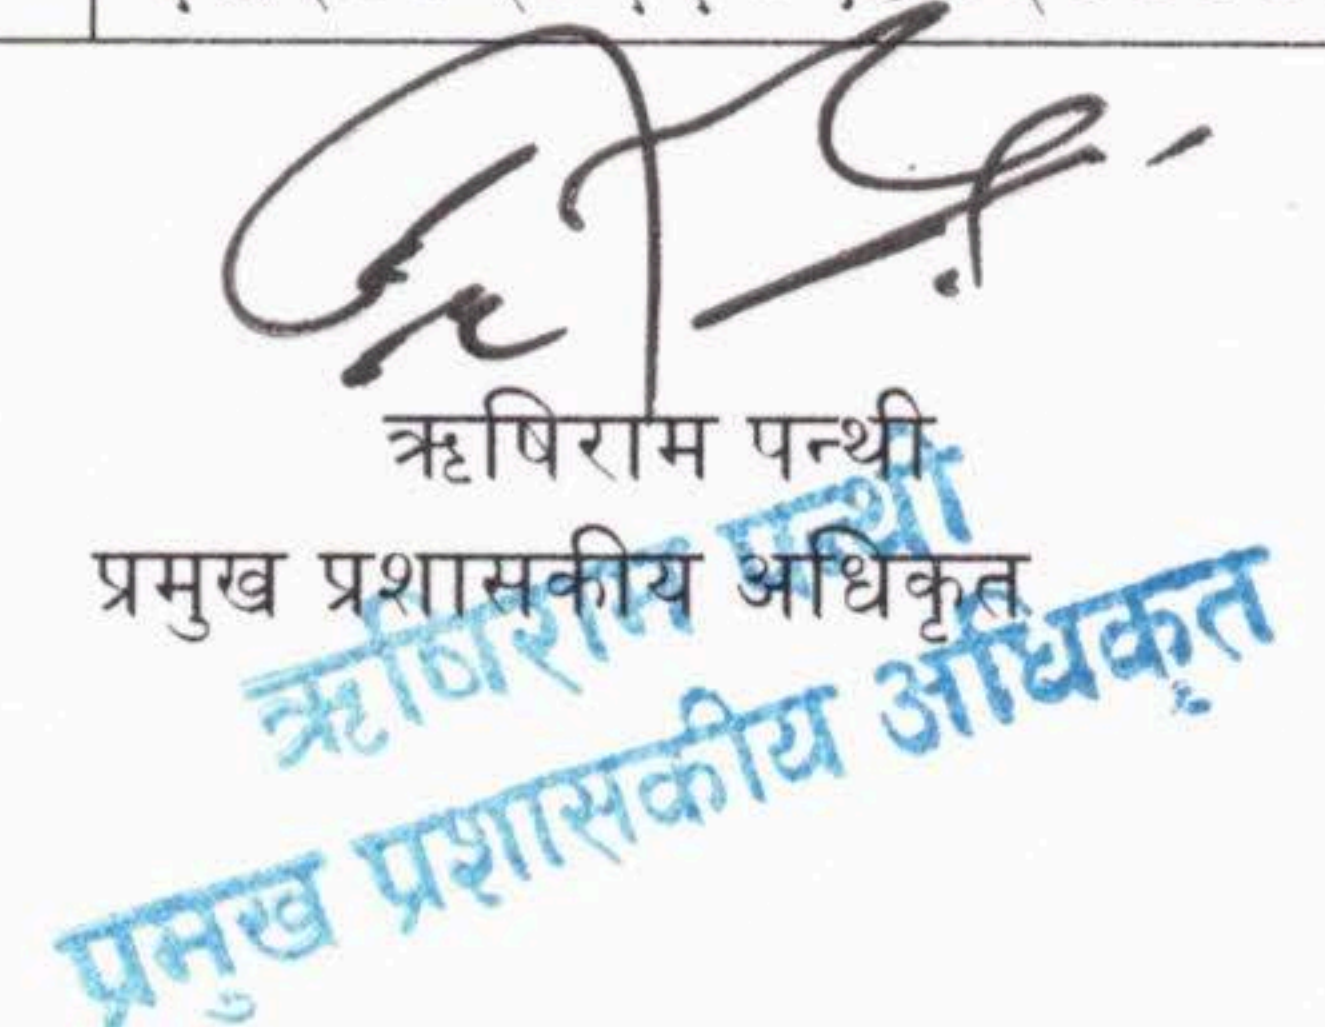 ऋषिराम पन्थी
प्रमुख प्रशासकीय अधिकृत
ऋषिराम पन्थी
प्रमुख प्रशासकीय अधिकृत